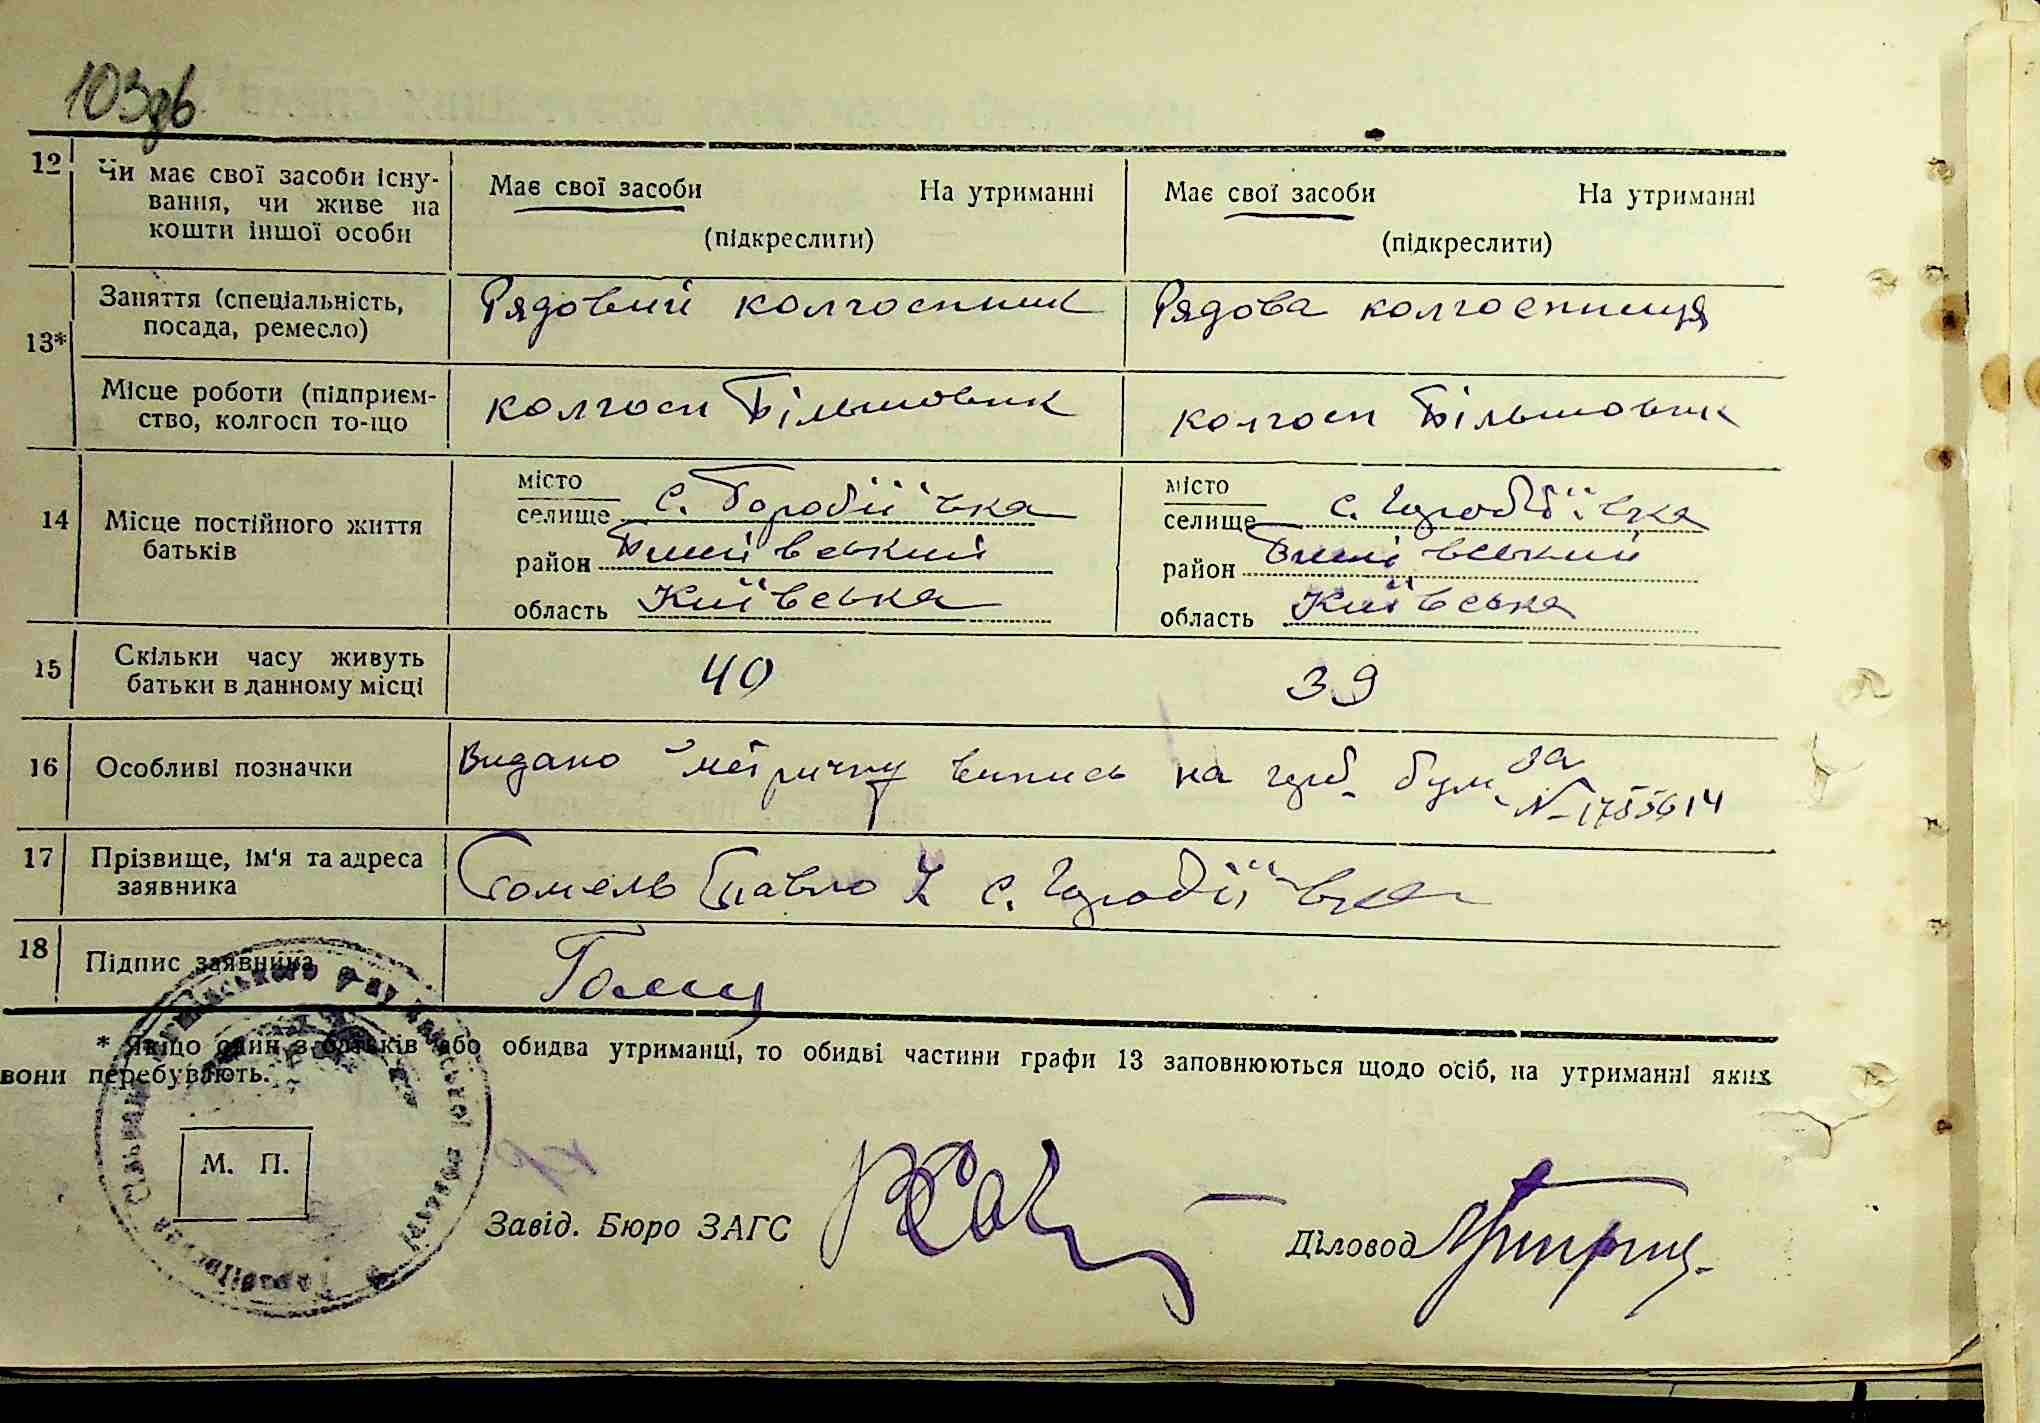 103зв
12 Чи має свої засоби існу-
вання, чи живе на
кошти іншої особи
Має свої засоби На утриманні
(підкреслити)
Має свої засоби На утриманні
(підкреслити)
13*
Заняття (спеціальність,
посада, ремесло)
Рядовий колгоспник
Рядова колгоспниця
Місце роботи (підприєм-
ство, колгосп то-що
колгосп Більшовик
колгосп Більшовик
14 Місце постійного життя
батьків
місто
селище с. Городіївка
район
область Київська
місто
селище с. Городіївка
район
область Київська
15 Скільки часу живуть
батьки в данному місці
40
39
16 Особливі позначки
Видано метричну випись на герб. бум. за
№ 1755614
17 Прізвище, ім'я та адреса
заявника
Павло с. Городіївка
18 Підпис заявника
* Якщо один з батьків або обидва утриманці, то обидві частини графи 13 заповнюються щодо осіб, на утриманні яких
вони перебувають.
М. П.
Завід. Бюро ЗАГС
Діловод